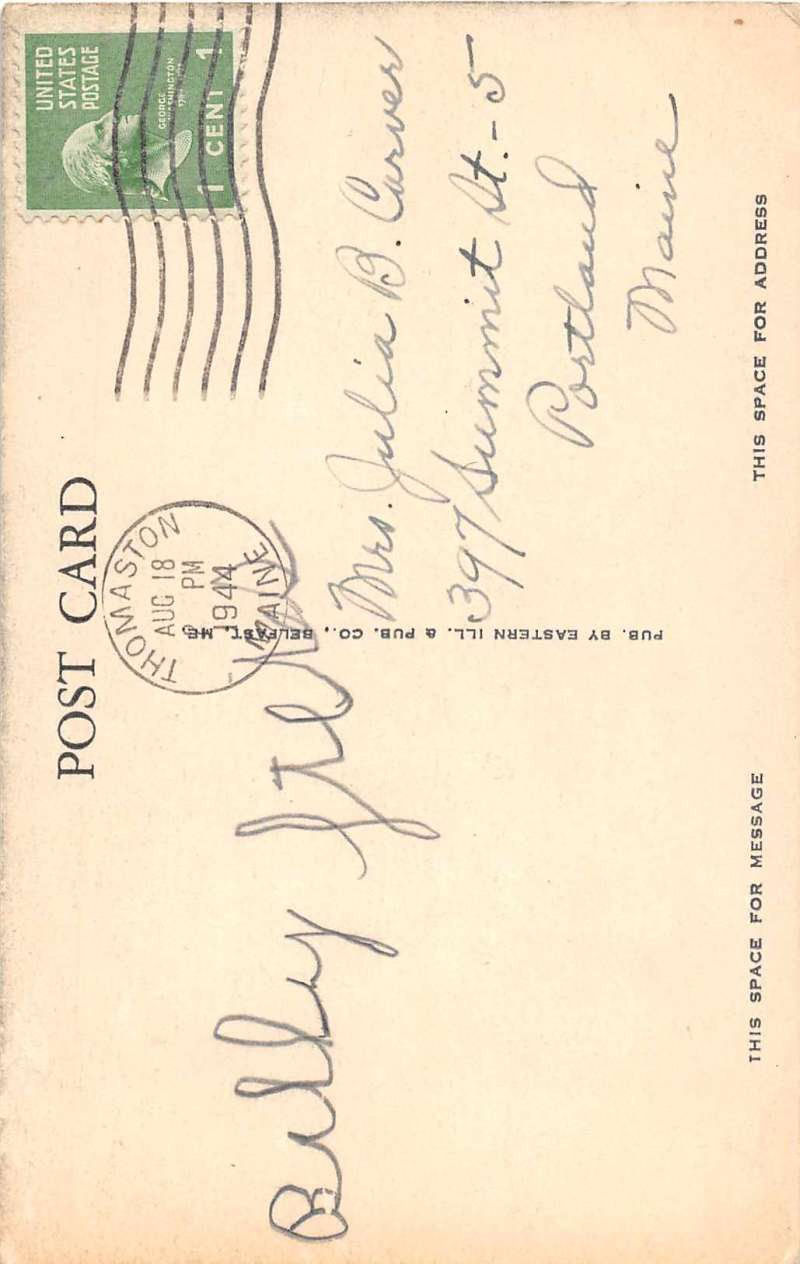 POST CARD
UNITED
STATES
POSTAGE
GEORGE
WASHINGTON
1 CENT 1
THOMASTON
AUG 18
PM
1944
MAINE
Billy
Mrs. Julia B. Carver
397 Summit St. - 5
Portland
Maine
PUB. BY EASTERN ILL. & PUB. CO., BELFAST, ME.
THIS SPACE FOR MESSAGE
THIS SPACE FOR ADDRESS